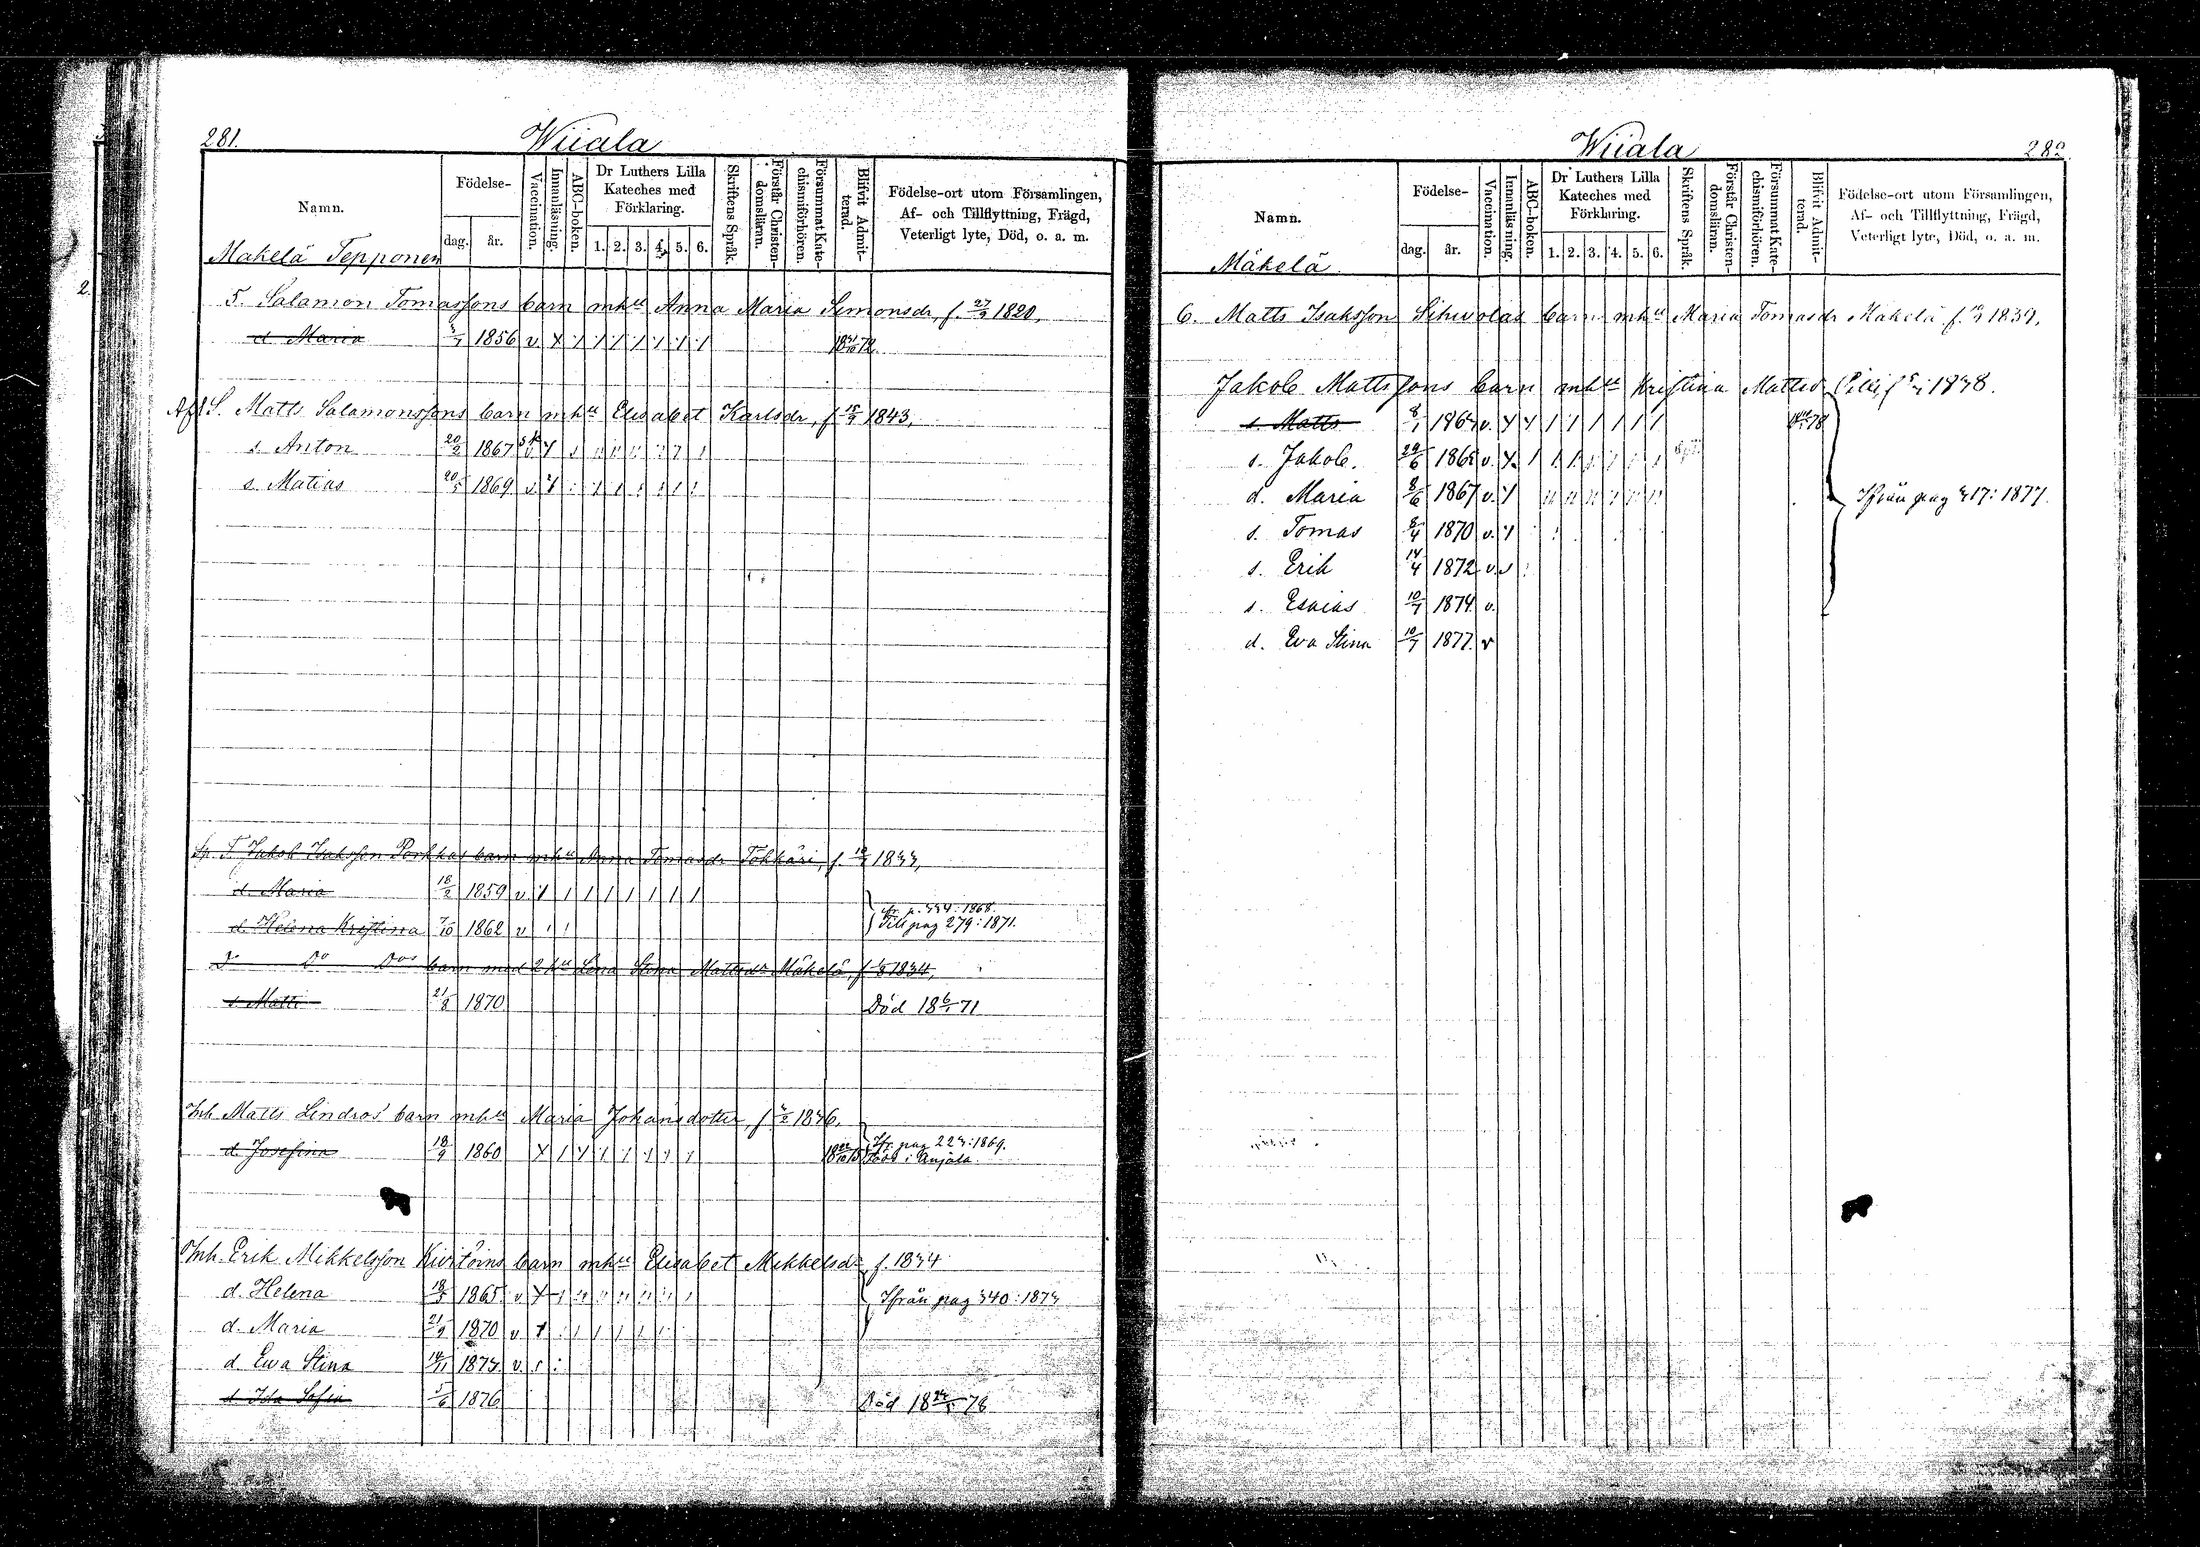 281.
Wiiala
Namn.
Födelse-
dag.
år.
Vaccination.
Innanläsning.
ABC-boken.
Dr Luthers Lilla
Kateches med
Förklaring.
1. 2. 3. 4. 5. 6.
Skriftens Språk.
Förstår Christen-
domsläran.
Försummat Kate-
chismiförhören.
Blifvit Admit-
terad.
Födelse-ort utom Församlingen,
Af- och Tillflyttning, Frägd,
Veterligt lyte, Död, o. a. m.
Makelä Tepponen
2.
5. Salamon Tomassons barn mhu Anna Maria Simonsdr, f. 27/2 1820,
d. Maria 1856 v.
S. Matts Salamonssons barn mhu Elisabet Karlsdr, f. 15/9 1843,
s. Anton 20/2 1867
s. Matias 20/5 1869
Jakob Isaksson Porkkas barn mhu Anna Tomasdr Tökkäri, f.
d. Maria 18/2 1859 v
ifr. p. 334: 1868.
d. Helena Kristina 7/10 1862 v
Till pag 279: 1871.
Do Dos barn med 2 hu Lena Stina Mattsdr Mäkelä, f. 1834,
s. Matts 21/8 1870 Död 18 6/1 71
Inh. Matts Lindros' barn mhu Maria Johansdotter, f. 1836.
Ifr. pag 223: 1869.
d. Josefina 18/9 1860
Född i Anjala.
Inh. Erik Mikkelsson Kivitörns barn mhu Elisabet Mikkelsdr f. 1834
d. Helena 18/5 1865. v.
Ifrån pag 340: 1873
d. Maria 21/9 1870 v
d. Ewa Stina 14/11 1873. v.
d. Ida Sofia 5/6 1876 Död 18 78
Wiiala
282.
Namn.
Födelse-
dag.
år.
Vaccination.
Innanläsning.
ABC-boken.
Dr Luthers Lilla
Kateches med
Förklaring.
1. 2. 3. 4. 5. 6.
Skriftens Språk.
Förstår Christen-
domsläran.
Försummat Kate-
chismiförhören.
Blifvit Admit-
terad.
Födelse-ort utom Församlingen,
Af- och Tillflyttning, Frägd,
Veterligt lyte, Död, o. a. m.
Mäkelä
6. Matts Isaksson Sihvolas barn mhu Maria Tomasdr Mäkelä f. 1839,
Jakob Mattssons barn mhu Kristina Mattsd. f. 1838.
s. Matts 8/1 1863 v.
s. Jakob. 1865 v.
d. Maria 8/6 1867 v.
Ifrån pag 317: 1877.
s. Tomas 8/4 1870 v.
s. Erik 14/4 1872 v.
s. Esaias 10/7 1874 v.
d. Eva Stina 10/7 1877. v